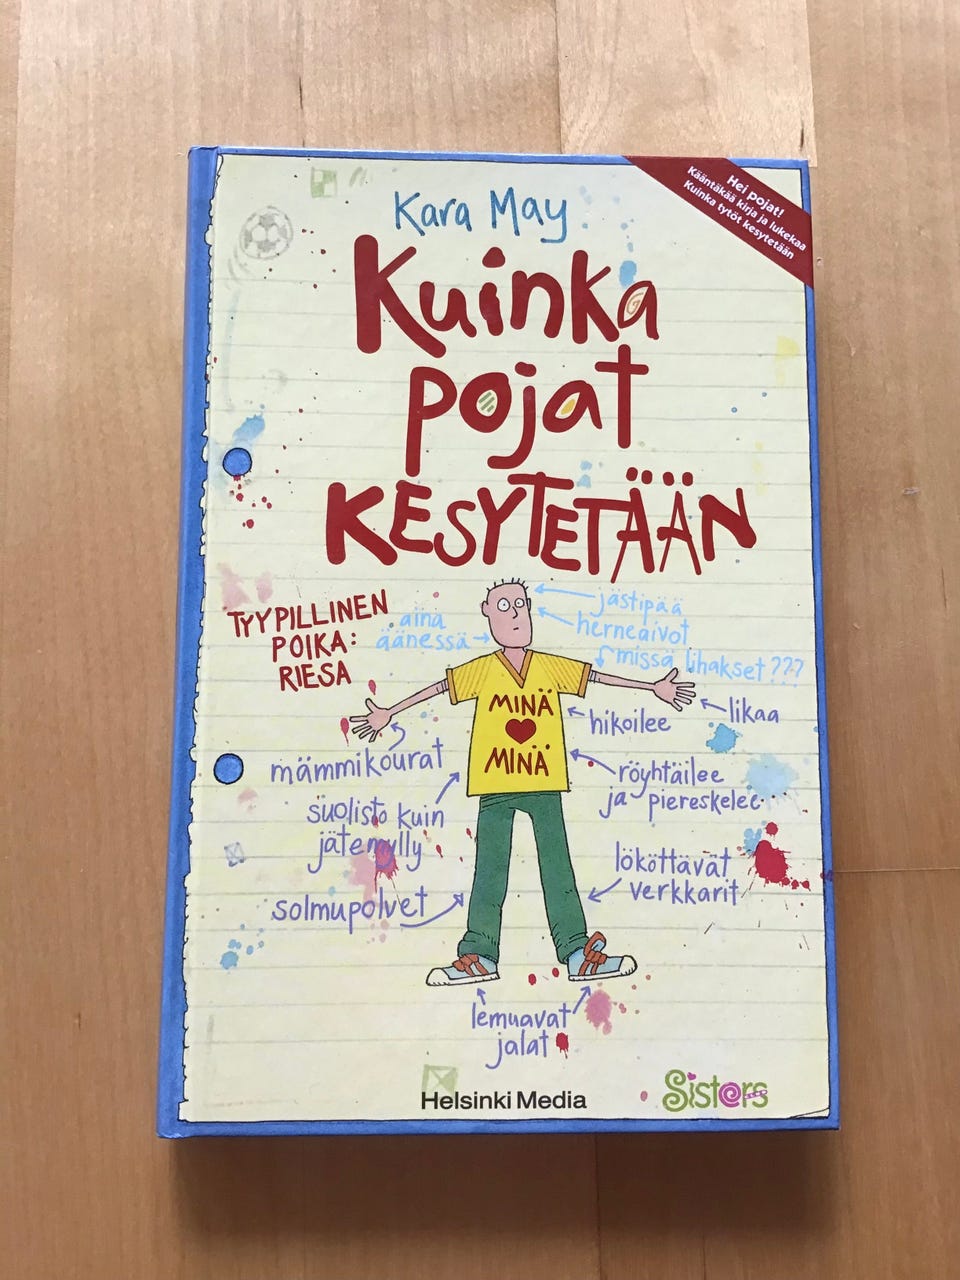 Hei pojat!
Kääntäkää kirja ja lukekaa
Kuinka tytöt kesytetään
Kara May
Kuinka
pojat
KESYTETÄÄN
TYYPILLINEN
POIKA:
RIESA
aina
äänessä
jästipää
herneaivot
missä lihakset???
MINÄ
MINÄ
hikoilee
likaa
mämmikourat
röyhtäilee
ja piereskelee
suolisto kuin
jätemylly
lököttävät
verkkarit
solmupolvet
lemuavat
jalat
Helsinki Media
Sisters